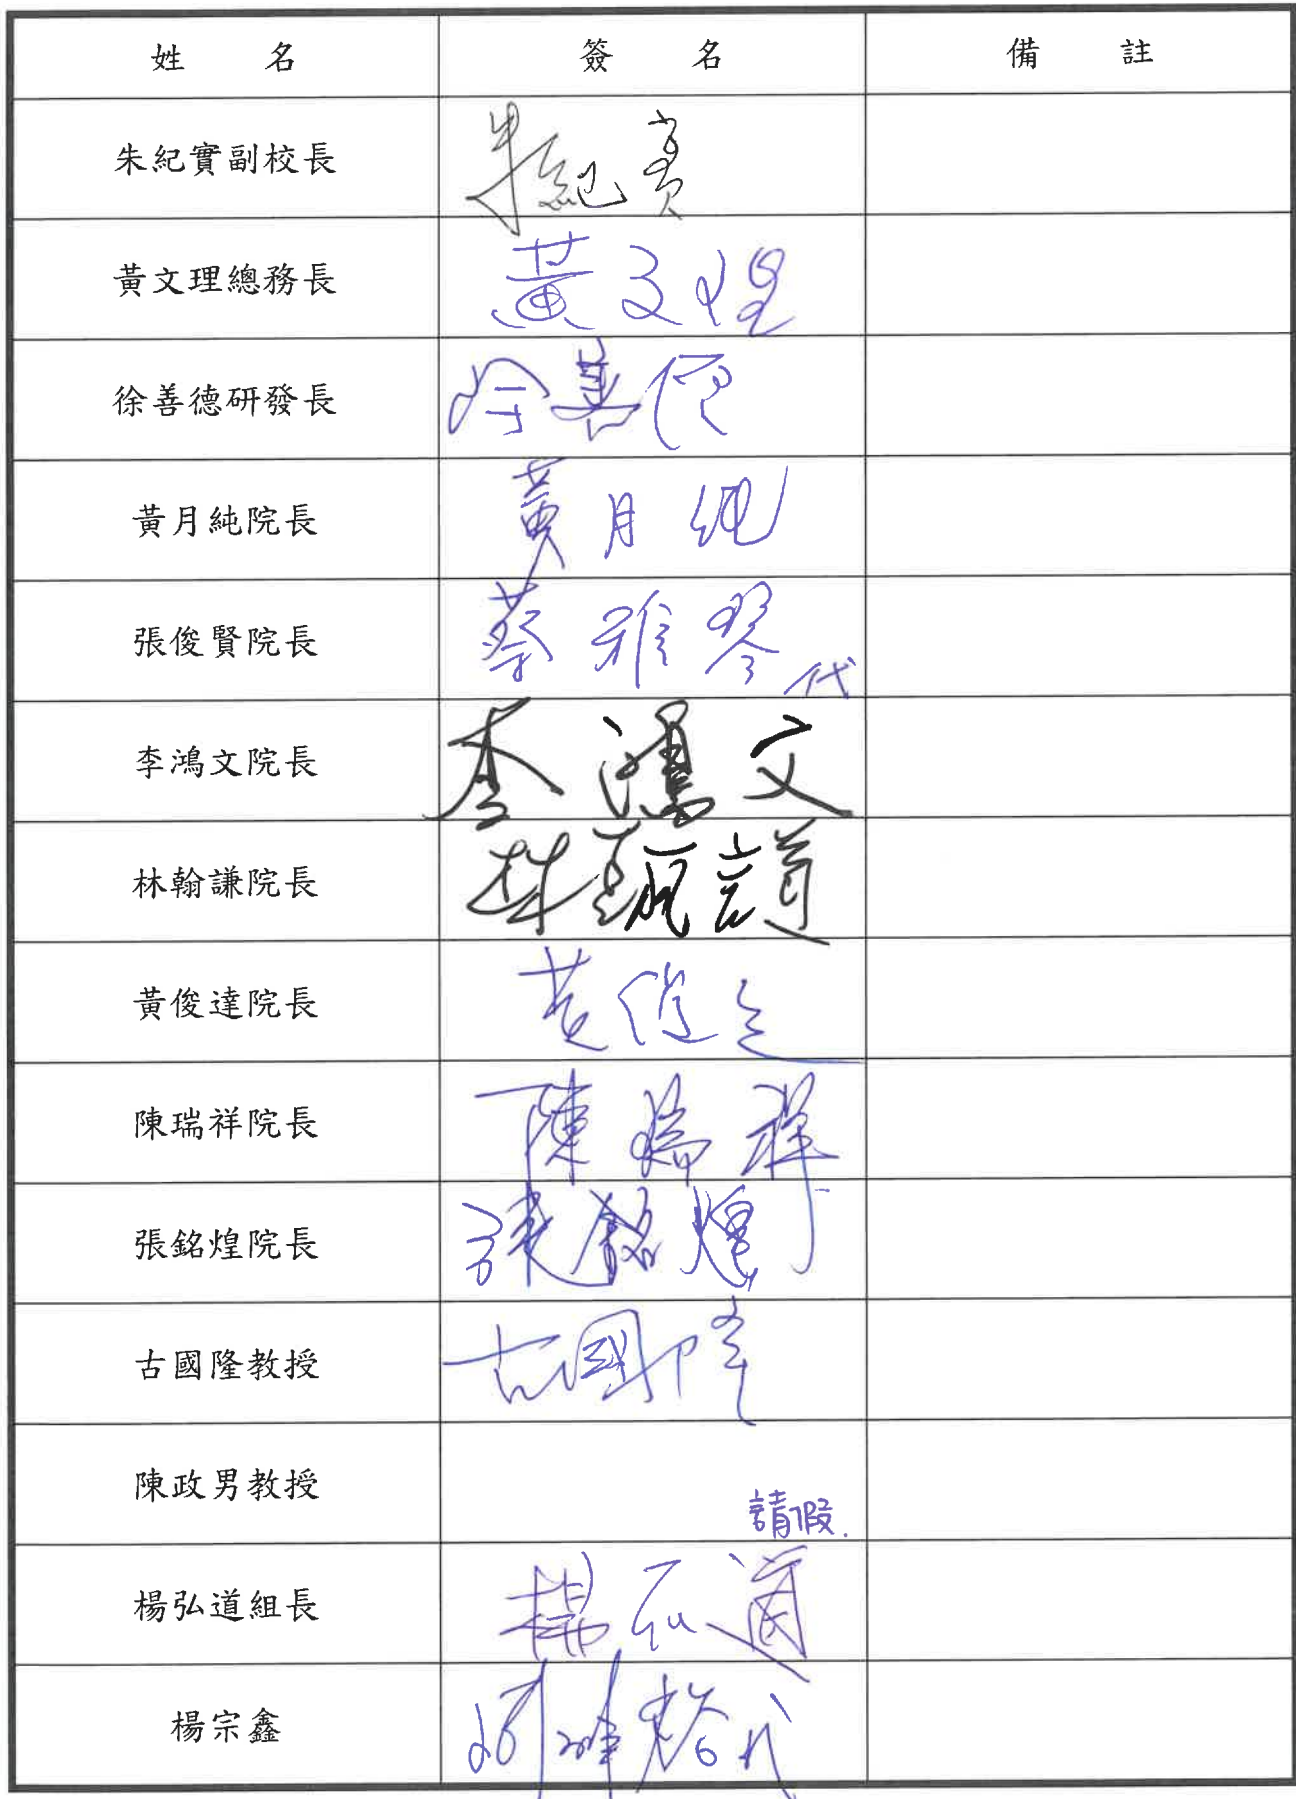 姓名 簽名 備註
朱紀實副校長 朱紀實
黃文理總務長 黃文理
徐善德研發長 徐善德
黃月純院長 黃月純
張俊賢院長 蔡雅琴代
李鴻文院長 李鴻文
林翰謙院長 林翰謙
黃俊達院長 黃俊達
陳瑞祥院長 陳瑞祥
張銘煌院長 張銘煌
古國隆教授 古國隆
陳政男教授 請假.
楊弘道組長 楊弘道
楊宗鑫